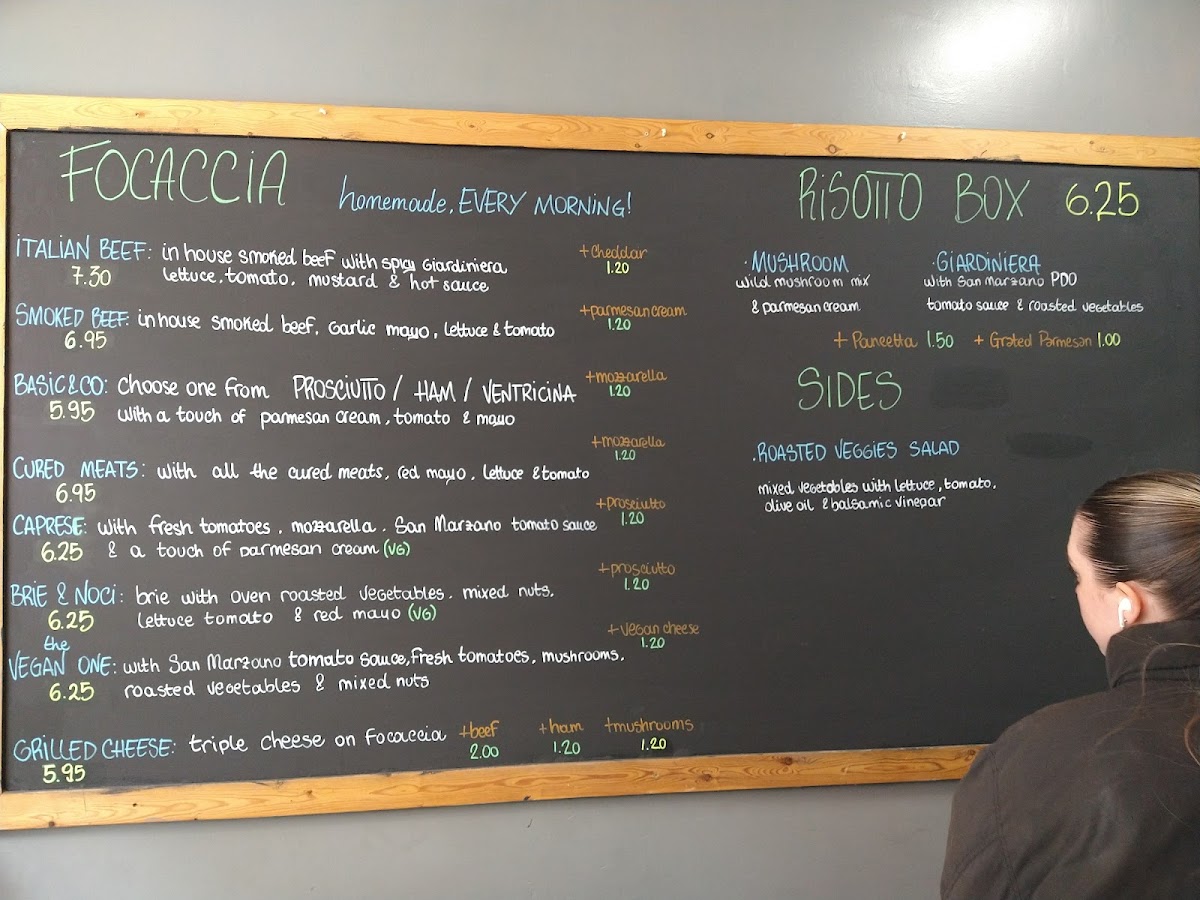 FOCACCIA homemade. EVERY MORNING!
ITALIAN BEEF: in house smoked beef with spicy Giardiniera +cheddar
7.30 lettuce, tomato, mustard & hot sauce 1.20
SMOKED BEEF: in house smoked beef, Garlic mayo, lettuce & tomato +parmesan cream
6.95 1.20
BASIC&CO: Choose one from PROSCIUTTO / HAM / VENTRICINA +mozzarella
5.95 with a touch of parmesan cream, tomato & mayo 1.20
CURED MEATS: with all the cured meats, red mayo, lettuce & tomato +mozzarella
6.95 1.20
CAPRESE: with fresh tomatoes, mozzarella, San Marzano tomato sauce +prosciutto
6.25 & a touch of parmesan cream (VG) 1.20
BRIE & NOCI: brie with oven roasted vegetables, mixed nuts, +prosciutto
6.25 lettuce tomato & red mayo (VG) 1.20
the
VEGAN ONE: with San Marzano tomato sauce, fresh tomatoes, mushrooms, +vegan cheese
6.25 roasted vegetables & mixed nuts 1.20
GRILLED CHEESE: triple cheese on Focaccia +beef +ham +mushrooms
5.95 2.00 1.20 1.20
RISOTTO BOX 6.25
.MUSHROOM
wild mushroom mix
& parmesan cream
.GIARDINIERA
with San marzano PDO
tomato sauce & roasted vegetables
+ Pancetta 1.50 + Grated Parmesan 1.00
SIDES
.ROASTED VEGGIES SALAD
mixed vegetables with lettuce, tomato,
olive oil & balsamic vinegar